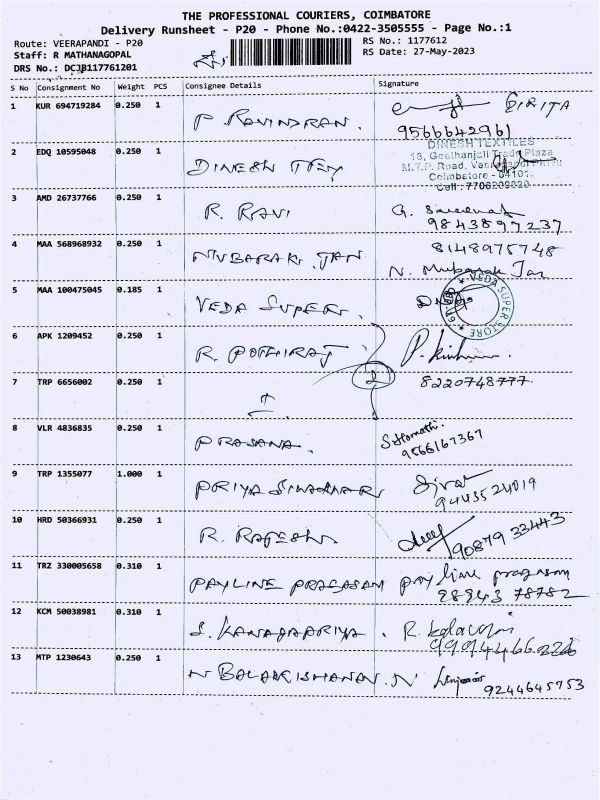 THE PROFESSIONAL COURIERS, COIMBATORE
Delivery Runsheet - P20 - Phone No.:0422-3505555 - Page No.:1
Route: VEERAPANDI - P20 RS No.: 1177612
Staff: R MATHANAGOPAL RS Date: 27-May-2023
DRS No.: DCJB117761201
S No Consignment No Weight PCS Consignee Details Signature
1 KUR 694719284 0.250 1 P RAVINDRAN. GIRITA
9566642961
2 EDQ 10595048 0.250 1 DINESH TEX
DINESH TEXTILES
18, Geethanjali Trade Plaza
M.T.P. Road,
Coimbatore - 64101.
Cell : 7706209820
3 AMD 26737766 0.250 1 R. RAVI G.
9843897237
4 MAA 568968932 0.250 1 MUBARAK JAN 8148975748
N. Mubarak Jan
5 MAA 100475045 0.185 1 VEDA SUPER. VEDA SUPER STORE
6 APK 1209452 0.250 1 R. POTHIRAJ P.
7 TRP 6656002 0.250 1 2 8220748777.
8 VLR 4836835 0.250 1 PRASANA.
9566167367
9 TRP 1355077 1.000 1 PRIYA
9443524019
10 HRD 50366931 0.250 1 R. RAJESH. 9087933443
11 TRZ 330005658 0.310 1 PAYLINE PRAGASAM pay line pragasam
98943 78782
12 KCM 50038981 0.310 1 S. KANAGAPRIYA. R.
13 MTP 1230643 0.250 1 N BALAKRISHANAN. N
9244645753